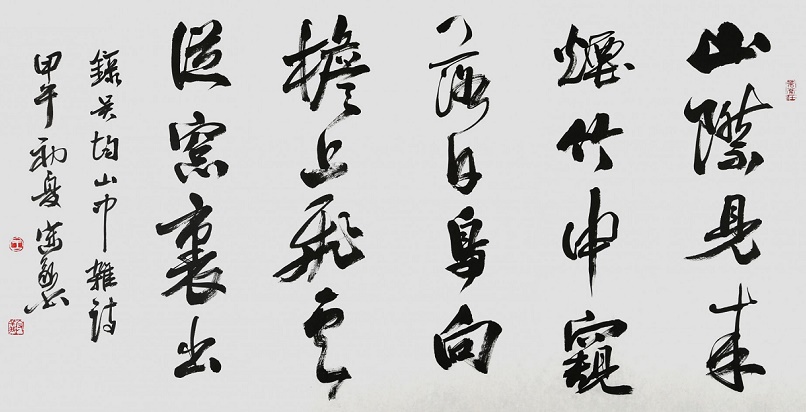 山際見来
煙竹中窺
落日鳥向
檐上飛雲
從窗裏出
錄吴均山中雜詩
甲午初夏